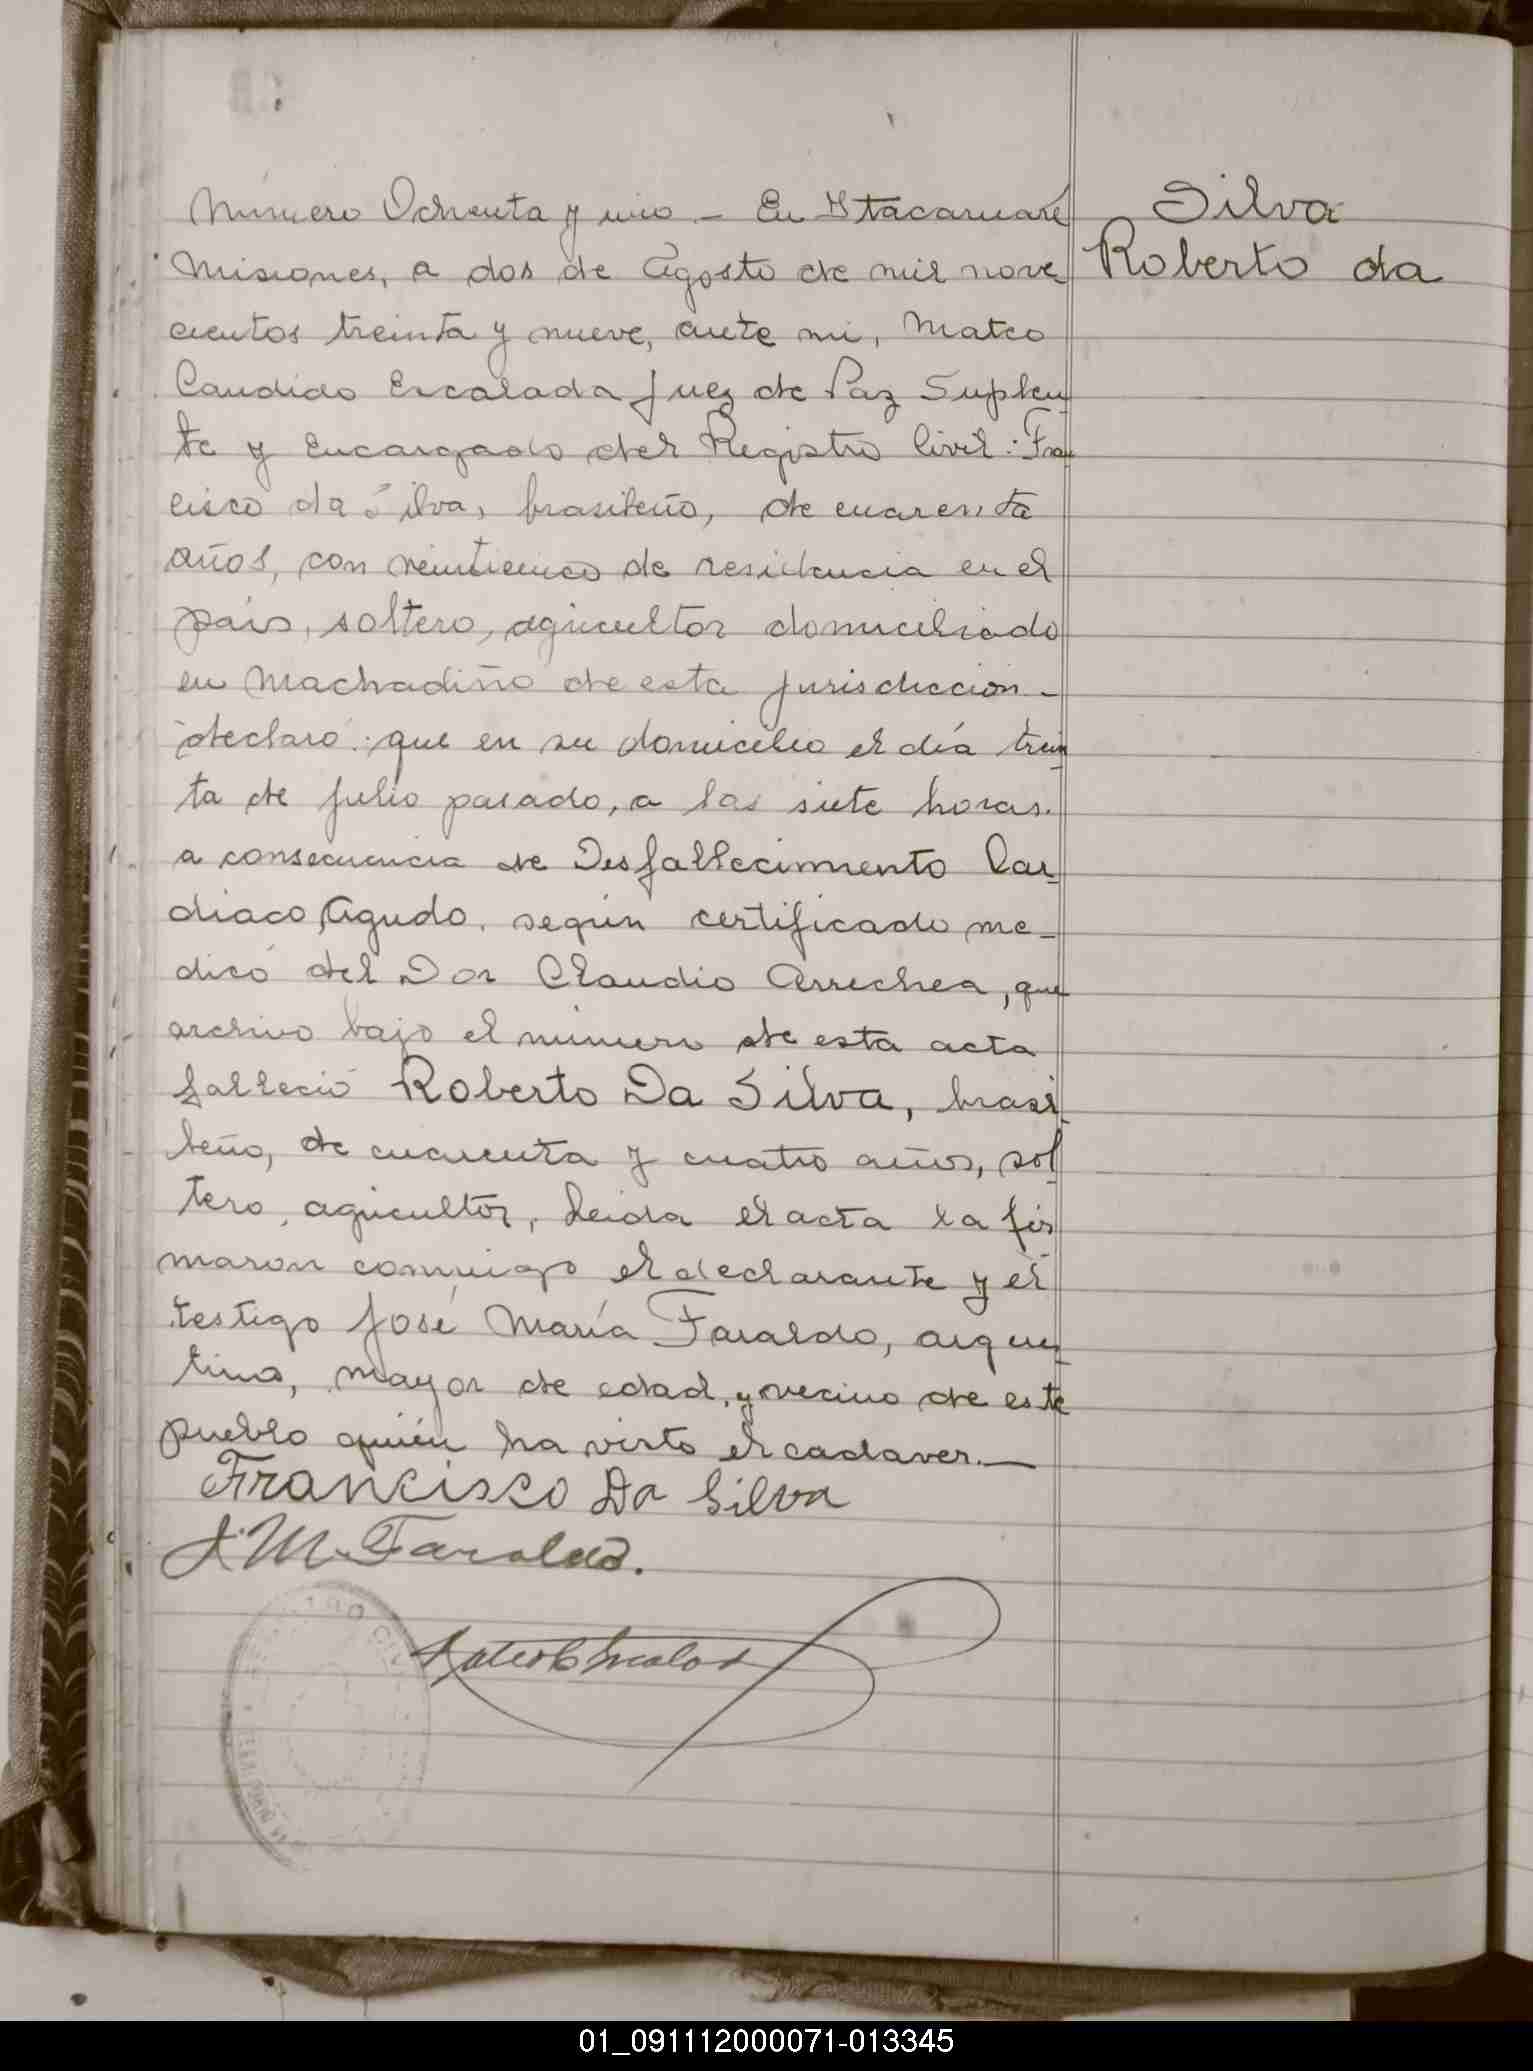 Número Ochenta y uno - En Ytacaruaré
Misiones, a dos de Agosto de mil nove
cientos treinta y nueve, ante mi, Mateo
Candido Escalada Juez de Paz Suplen-
te y Encargado del Registro Civil: Fran
cisco da Silva, brasileño, de cuarenta
años, con veinticinco de residencia en el
país, soltero, agricultor domiciliado
en Machadiño de esta jurisdiccion -
declaró: que en su domicilio el día trein
ta de Julio pasado, a las siete horas.
a consecuencia de Desfallecimiento Car-
diaco Agudo. según certificado me-
dico del Dor Claudio Arrechea, que
archivo bajo el número de esta acta
falleció Roberto Da Silva, brasi-
leño, de cuarenta y cuatro años, sol
tero, agricultor, Leida el acta la fir
maron conmigo el declarante y el
testigo José María Faraldo, argen-
tino, mayor de edad, y vecino de este
pueblo quién ha visto el cadaver. —
Francisco Da Silva
J. M. Faraldo.
Mateo C Escalada
Silva
Roberto da
01_091112000071-013345